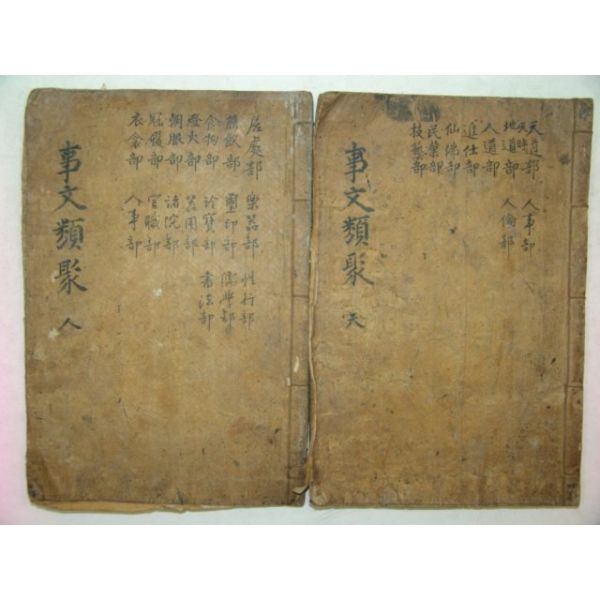 天道部 人事部
天時
地道部 人倫部
人道部
進仕部
仙佛部
民業部
技藝部
事文類聚 天
居處部 樂器部 性行部
燕飮部 璽印部 儒學部
食物部 珍寶部 書法部
燈火部 器用部
朝服部 諸院部
冠履部 官職部
衣衾部 人事部
事文類聚 人